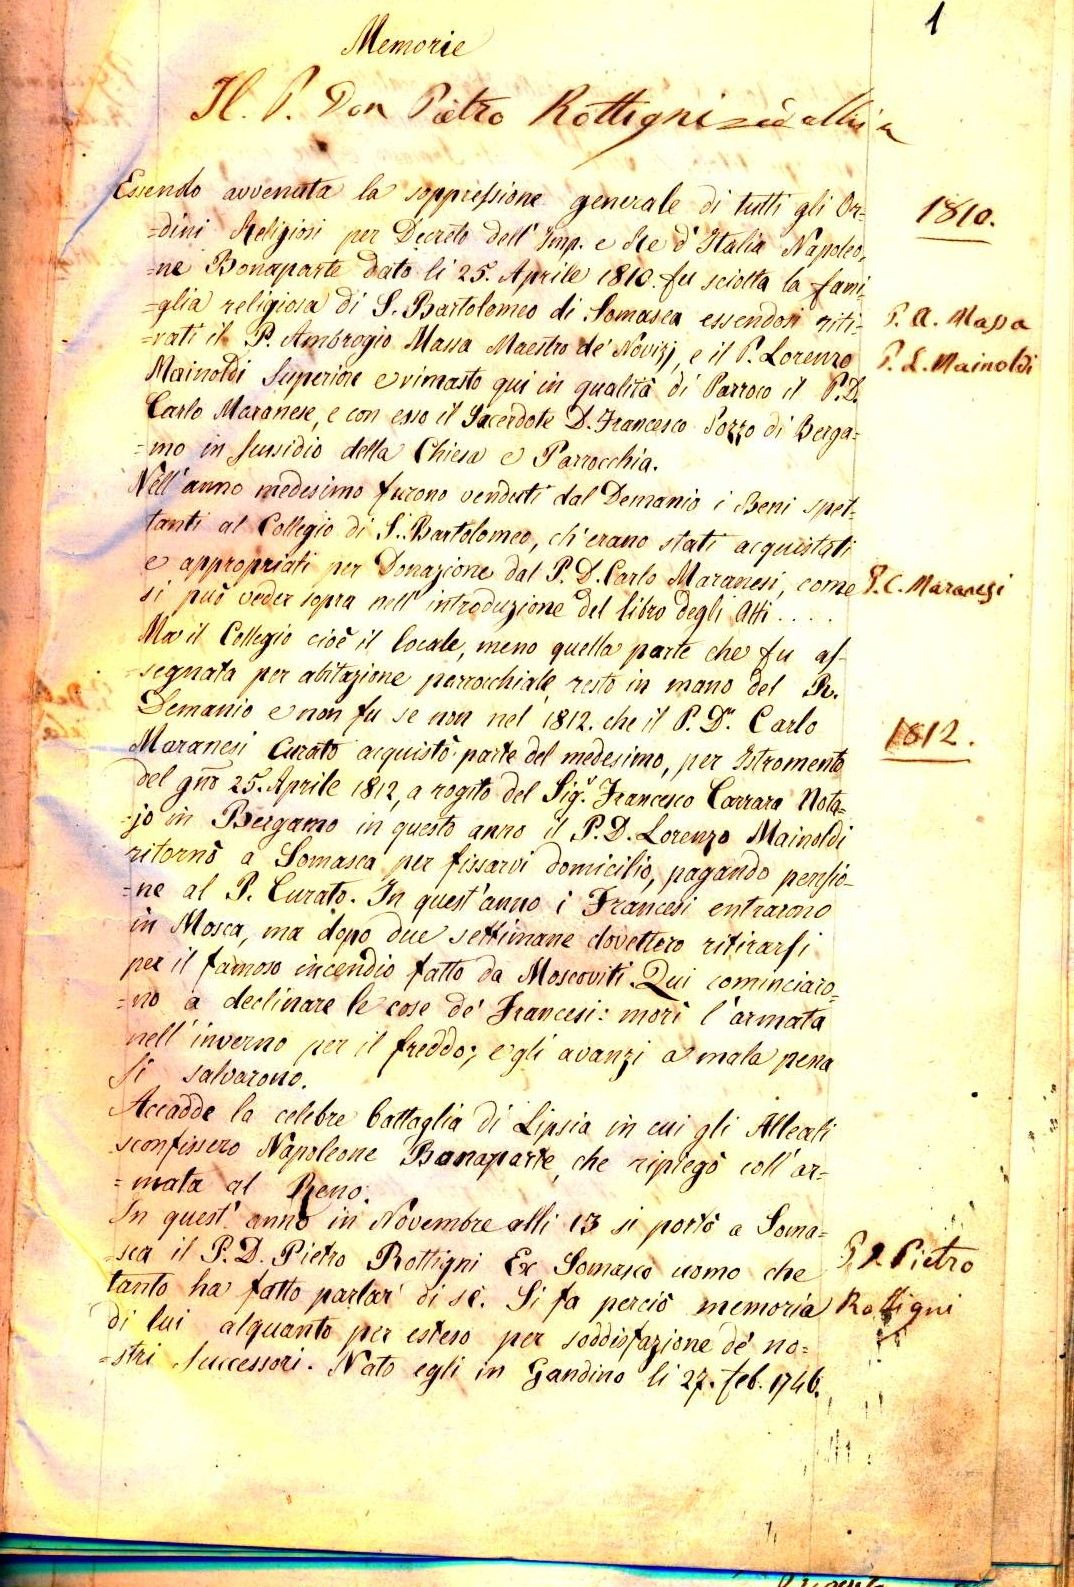 1
Memorie
Il. P. Don Pietro Rottigni
Essendo avvenuta la soppressione generale di tutti gli Or-
=dini Religiosi per Decreto dell' Imp. e Re d' Italia Napoleo,
=ne Bonaparte dato li 25. Aprile 1810. fu sciolta la fami-
=glia religiosa di S. Bartolomeo di Somasca essendosi riti-
=rati il P. Ambrogio Massa Maestro de' Novizj, e il P. Lorenzo
Mainoldi Superiore e rimasto qui in qualità di Parroco il P.D.
Carlo Maranese, e con esso il Sacerdote D. Francesco Pozzo di Berga=
=mo in sussidio della Chiesa e Parrocchia.
Nell' anno medesimo furono venduti dal Demanio i Beni spet-
tanti al Collegio di S. Bartolomeo, ch' erano stati acquistati
e appropriati per Donazione dal P. D. Carlo Maranesi, come
si può veder sopra nell' introduzione del libro degli Atti . . . .
Ma il Collegio cioè il locale, meno quella parte che fu as-
=segnata per abitazione parrocchiale, restò in mano del R.
Demanio e non fu se non nel 1812. che il P. Dn. Carlo
Maranesi Curato acquistò parte del medesimo, per Istromento
del gno 25. Aprile 1812, a rogito del Sigr. Francesco Carrara Nota=
=jo in Bergamo in questo anno il P. D. Lorenzo Mainoldi
ritornò a Somasca per fissarvi domicilio, pagando pensio-
=ne al P. Curato. In quest' anno i Francesi entrarono
in Mosca, ma dopo due settimane dovettero ritirarsi
per il famoso incendio fatto da Moscoviti. Qui cominciaro=
=no a declinare le cose de' Francesi: morì l' armata
nell' inverno per il freddo; e gli avanzi a mala pena
si salvarono.
Accadde la celebre battaglia di Lipsia in cui gli Alleati
sconfissero Napoleone Bonaparte, che ripiegò coll' ar=
=mata al Reno.
In quest' anno in Novembre alli 13 si portò a Soma=
=sca il P. D. Pietro Rottigni Ex Somasco uomo che
tanto ha fatto parlar di sé. Si fa perciò memoria
di lui alquanto per esteso per soddisfazione de' no=
=stri Successori. Nato egli in Gandino li 27. feb. 1746.
1810.
P. A. Massa
P. L. Mainoldi
P. C. Maranesi
1812.
P. D. Pietro
Rottigni